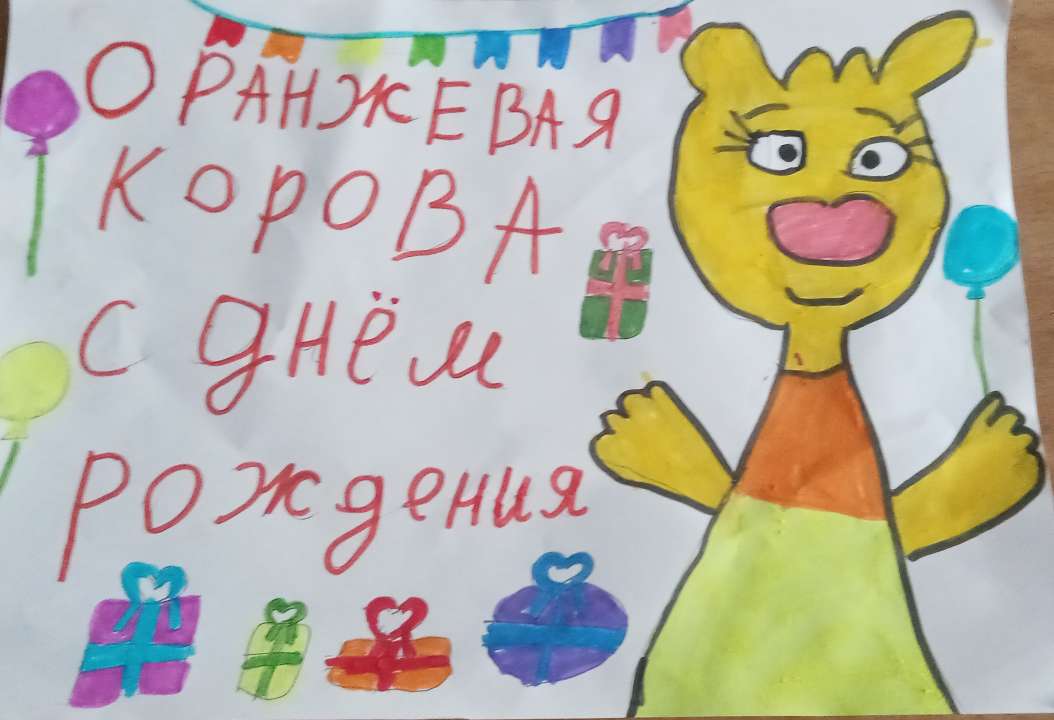 ОРАНЖЕВАЯ
КОРОВА
С ДНЁМ
РОЖДЕНИЯ